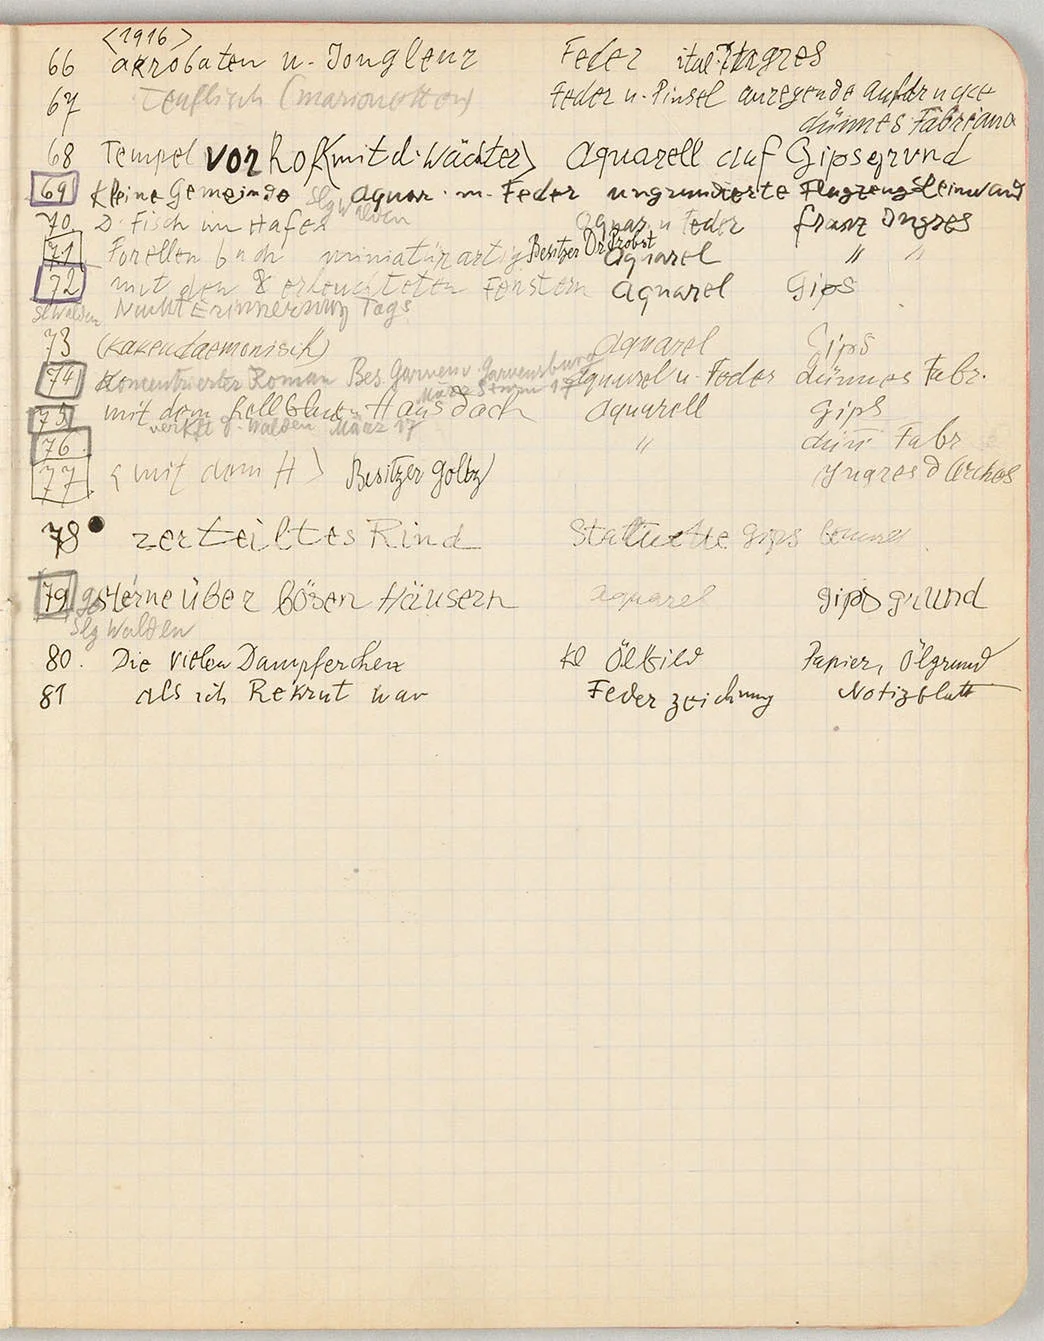 <1916>
66 akrobaten u. Jongleur Feder ital. Ingres
67 Teuflisch (marionetten) Feder u. Pinsel anregende aufdrucke
dünnes Fabriano
68 Tempel vor Hof (mit d. Wächter) Aquarell auf Gipsgrund
69 Kleine Gemeinde aquar. m. Feder ungrundierte Flugzeugleinwand
Slg Walden
70 D. Fisch im Hafen aquar. u Feder franz Ingres
71 Forellenbach miniaturartig Besitzer Dr. Probst aquarel " "
72 mit den 8 erleuchteten Fenstern aquarel Gips
Slg Walden Nacht Erinnerung Tags
73 (kakendaemonisch) aquarel Gips
74 konzentrierter Roman Bes. Garvens v. Garvensburg aquarel u. Feder dünnes Fabr.
März Sturm 17
75 mit dem hellblauen Hausdach aquarell gips
verkft d. Walden März 17
76 " dün̅ Fabr
77 <mit dem H> Besitzer Goltz Yngres d Arches
78 zerteiltes Rind Statuette gips
79 Sterne über bösen Häusern aquarel gipsgrund
Slg Walden
80. Die vielen Dampferchen kl Ölbild Papier, Ölgrund
81 als ich Rekrut war Federzeichnung Notizblatt